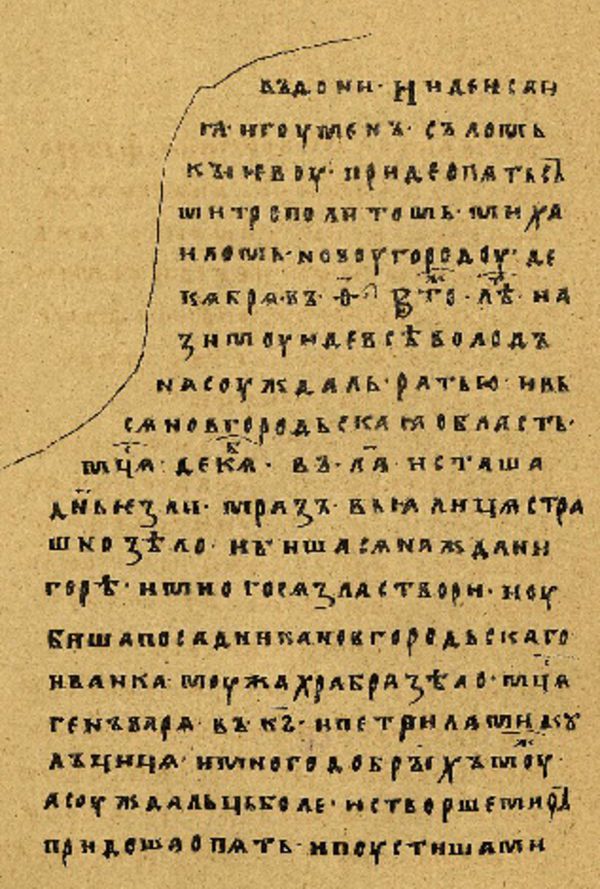 въдони · Иидеисаи
ꙗ · игоумень · съломь
кꙑевоу · придеопѧтьсъ
митрополитомь · миха
иломь · новоугородоу · де
кѧбрѧ · въ · ѳ҃ · Въто · лѣ · на
зимоуидевсѣволодъ
насоуждаль · ратью · ивь
сѧновгородьскаꙗобласть ·
мц҃ѧ · декѧ · въ · ла҃ · исташа
дн҃ьѥзли · мразъ · вьꙗлицѧстра
шнозѣло · иꙑшасѧнаждани
горѣ · имногосѧзластвори · ноу
бишапосадникановгородьскаго
иванка · моужахрабразѣло · мц҃ѧ
генъварѧ · въ · кз҃ · ипетриламику
льцицѧ · имногодобрꙑхъмоу
асоуждальцьболе · истворшемиръ
придошаопѧть · ипоустишами